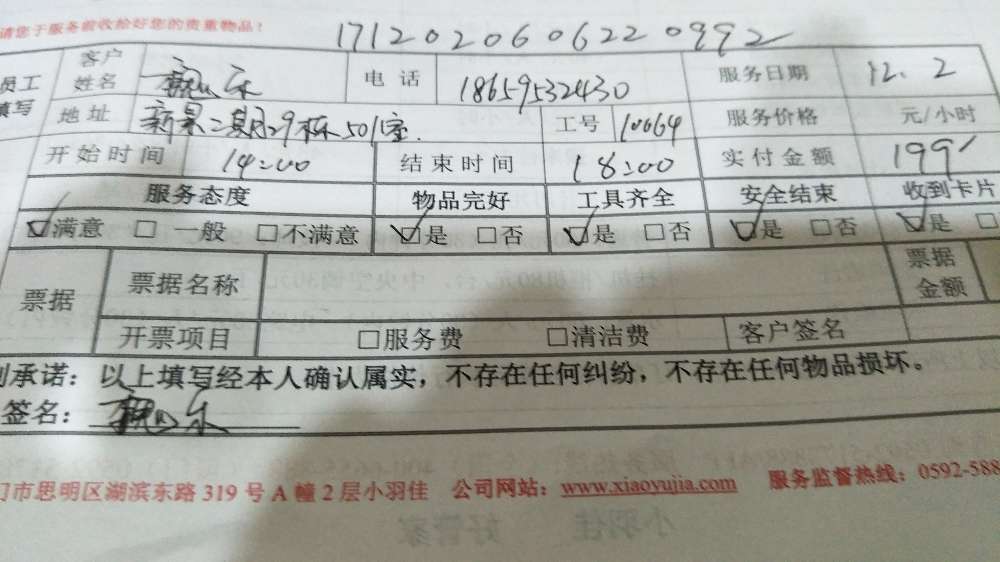 请您于服务前收拾好您的贵重物品!
171202060622 0992
员工填写 客户姓名 电话 18659532430 服务日期 12.2
地址 新景二期29栋501室. 工号 10064 服务价格 元/小时
开始时间 14:00 结束时间 18:00 实付金额 199
服务态度 物品完好 工具齐全 安全结束 收到卡片
☑满意 □一般 □不满意 ☑是 □否 ☑是 □否 ☑是 □否 ☑是 □
票据 票据名称 票据金额
开票项目 □服务费 □清洁费 客户签名
承诺:以上填写经本人确认属实,不存在任何纠纷,不存在任何物品损坏。
签名:
门市思明区湖滨东路 319 号 A 幢 2 层小羽佳 公司网站:www.xiaoyujia.com 服务监督热线:0592-588